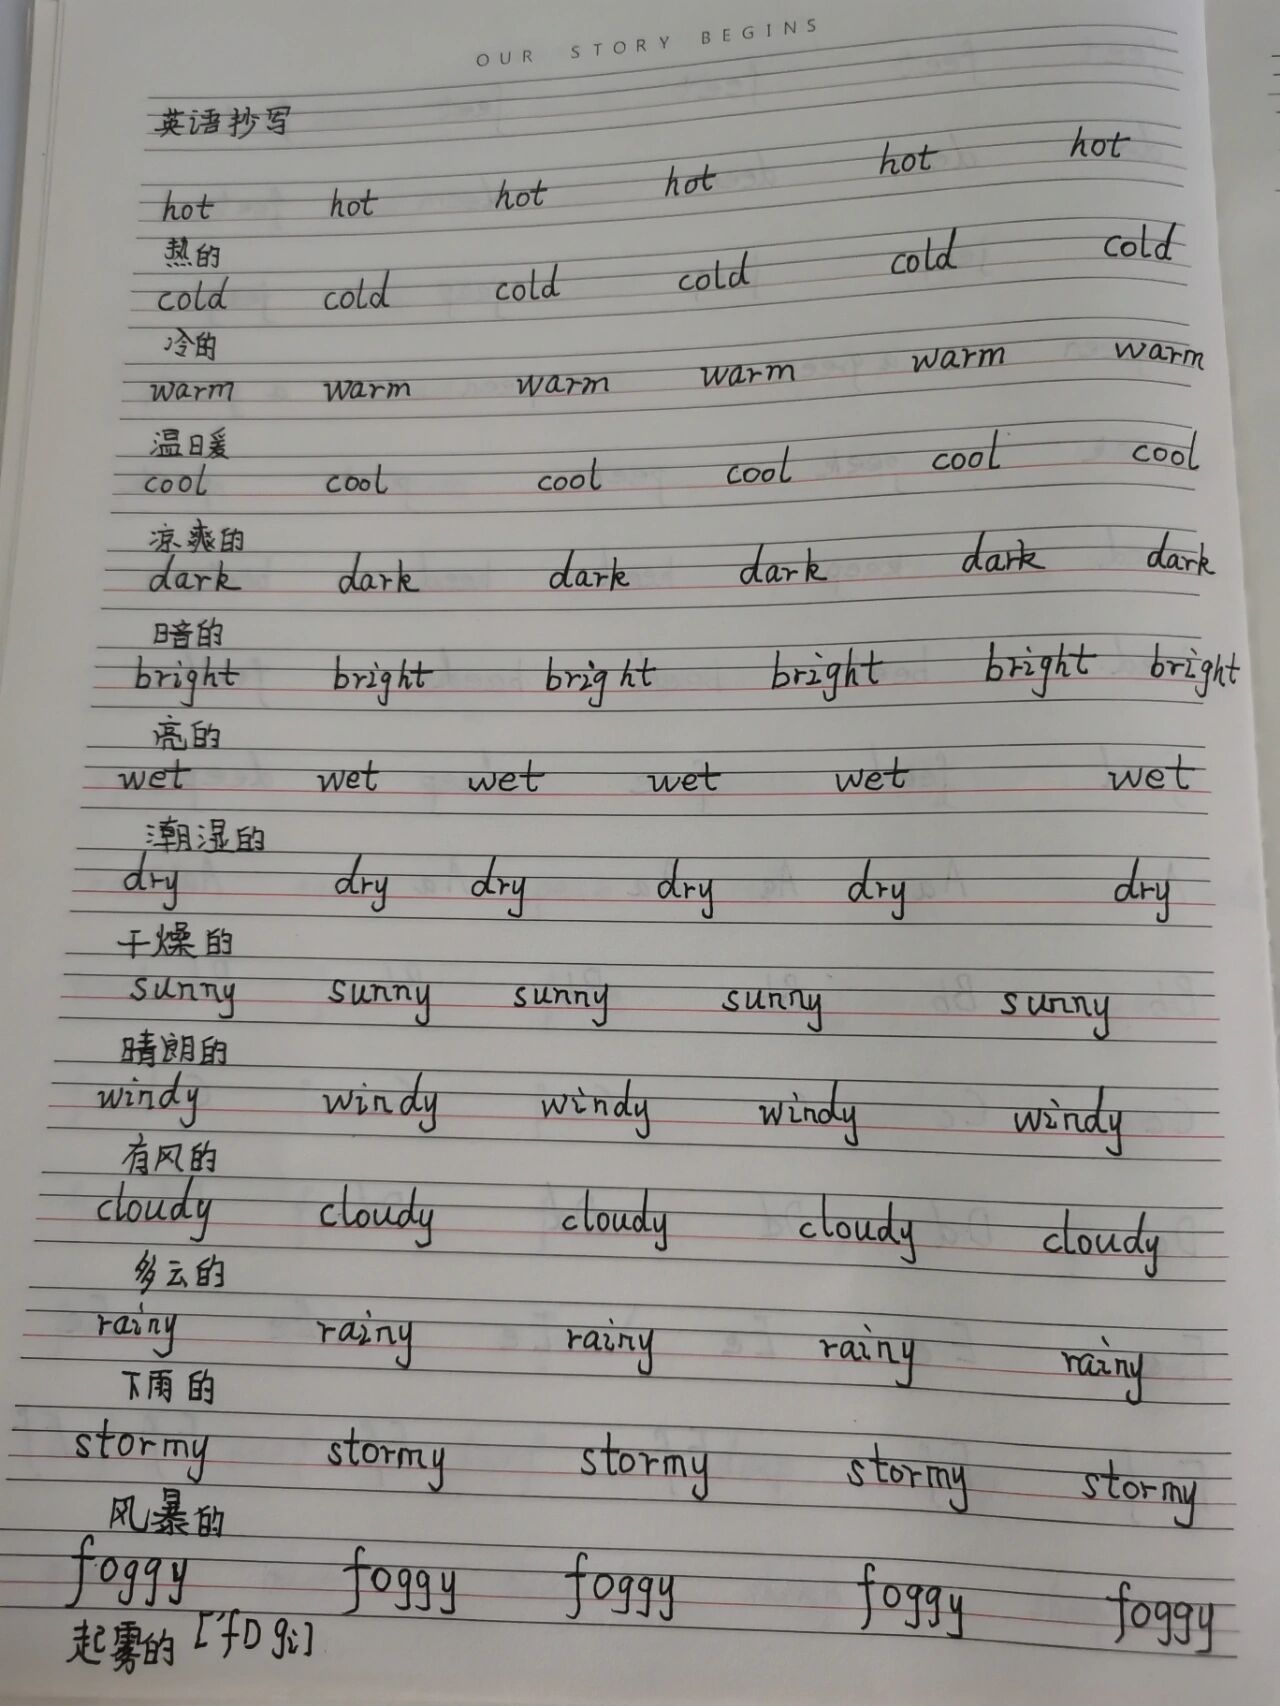 OUR STORY BEGINS
英语抄写
hot hot hot hot hot hot
热的
cold cold cold cold cold cold
冷的
warm warm warm warm warm warm
温暖
cool cool cool cool cool cool
凉爽的
dark dark dark dark dark dark
暗的
bright bright bright bright bright bright
亮的
wet wet wet wet wet wet
潮湿的
dry dry dry dry dry dry
干燥的
sunny sunny sunny sunny sunny
晴朗的
windy windy windy windy windy
有风的
cloudy cloudy cloudy cloudy cloudy
多云的
rainy rainy rainy rainy rainy
下雨的
stormy stormy stormy stormy stormy
风暴的
foggy foggy foggy foggy foggy
起雾的 ['fɒgi]